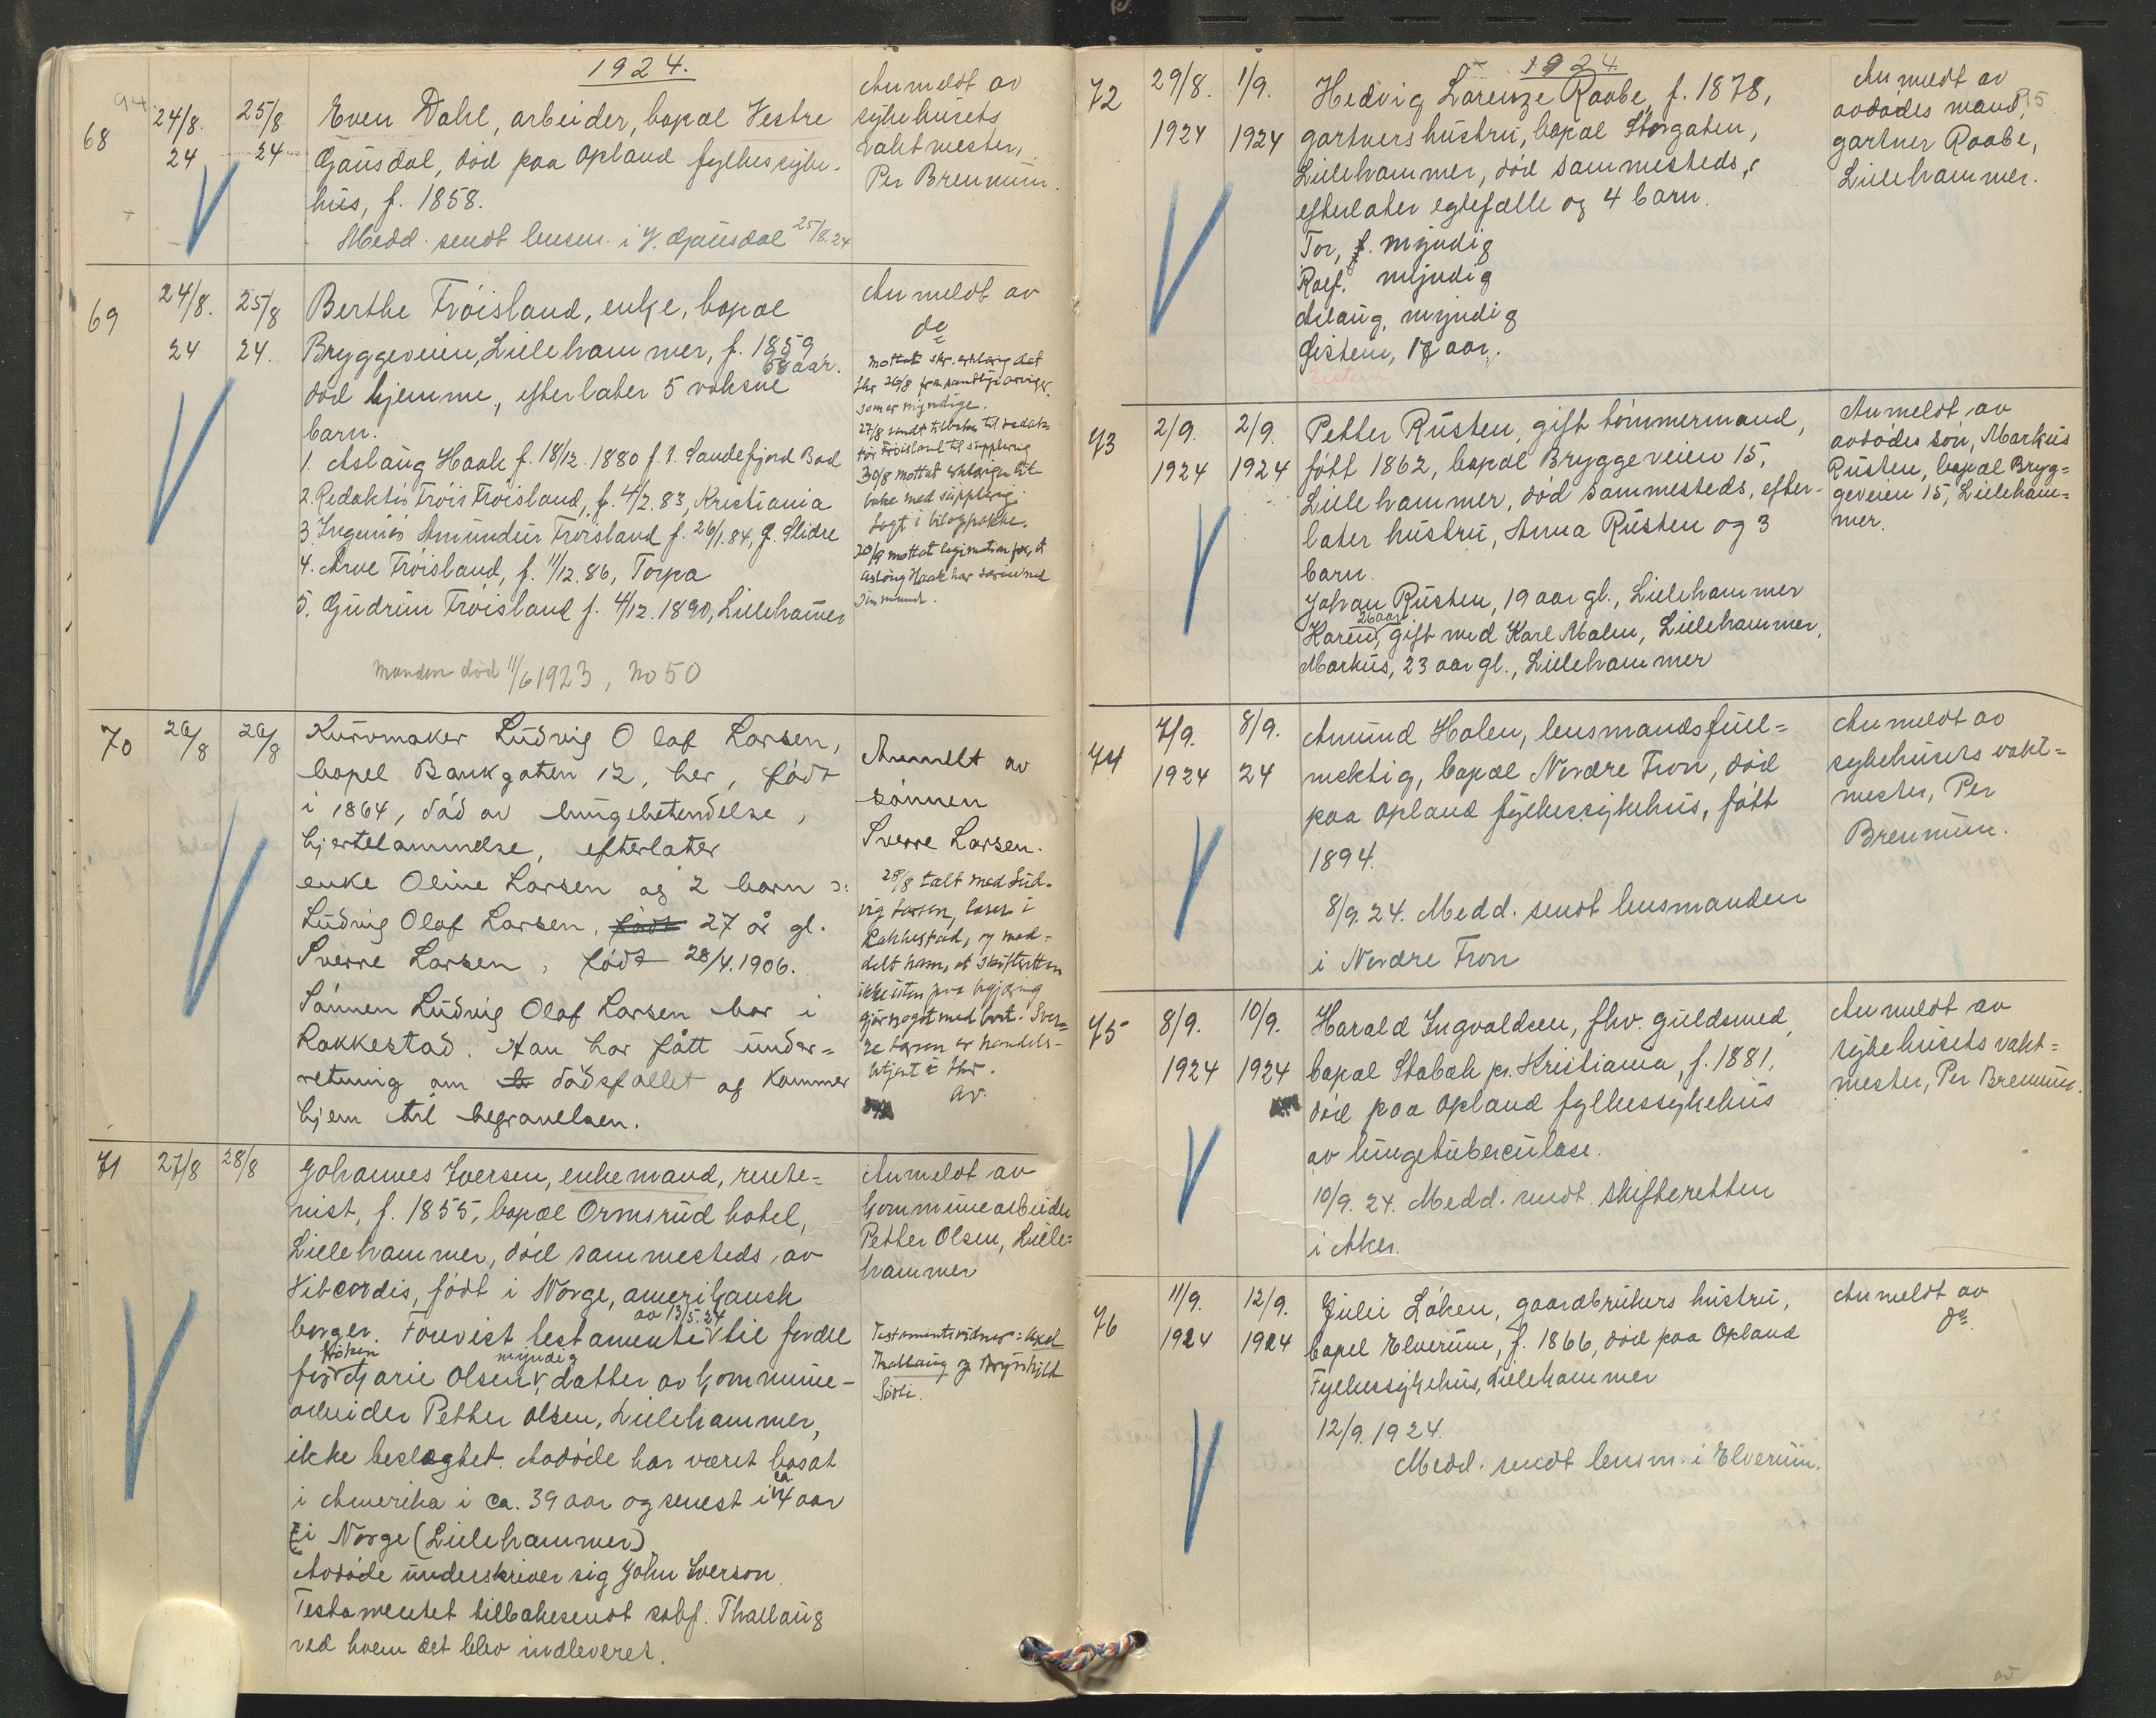 1924.
68
24/8.
24
25/8
24
Even Dahl, arbeider, bopæl Vestre
Gausdal, död paa Opland fylkessyke-
hus, f. 1858.
Medd. sendt lensm. i V. Gausdal 25/8.24
Anmeldt av
sykehusets
vaktmester,
Per Brenmun.
69
24/8.
24
25/8
24.
Berthe Fröisland, enke, bopæl
Bryggeveien, Lillehammer, f. 1859
65 aar.
död hjemme, efterlater 5 voksne
barn.
1. Aslaug Haak f. 18/12.1880 f. t. Sandefjord Bad
2. Redaktör Fröis Fröisland, f. 4/2.83, Kristiania
3 Ingeniör Amundur Fröisland f. 26/1.84, Ö. Slidre
4. Arve Fröisland, f. 11/12.86, Torpa
5. Gudrun Fröisland f. 4/12.1890, Lillehamer
Manden död 11/6 1923, No 50
Anmeldt av
do
Mottat skr. erklæring dat
Lhr 26/8 fra samtlige arvinger
som er myndige.
27/8 sendt tilbake til redak-
tör Fröisland til supplering
30/8 mottat erklæringen til-
bake med supplering.
Lagt i bilagpakke.
20/9 mottat legimation for, at
Aslaug Haak har særeie med
sin mand.
70
26/8
26/8
Kurvmaker Ludvig Olaf Larsen,
bopel Bankgaten 12, her, födt
i 1864, död av lungebetendelse,
hjertelammelse, efterlater
enke Oline Larsen og 2 barn ɔ:
Ludvig Olaf Larsen, födt 27 år gl.
Sverre Larsen, födt 28/4.1906.
Sönnen Ludvig Olaf Larsen bor i
Rakkestad. Han har fått under=
retning om dödsfallet og kommer
hjem til begravelsen.
Anmeldt av
sönnen
Sverre Larsen.
28/8 talt med Lud-
vig Larsen, lærer i
Rakkestad, og med-
delt ham, at skifteretten
ikke uten paa begjæring
gjör noget med boet. Sver=
re Larsen er handels-
betjent i Lhr.
71
27/8
28/8
Johannes Iversen, enkemand, rente=
nist, f. 1855, bopæl Ormsrud hotel,
Lillehammer, död sammesteds av
Vit cordis, födt i Norge, amerikansk
borger. Forevist testamente av 13/5.24 til fordel
for fröken Marie Olsen, myndig, datter av kommune-
arbeider Petter Olsen, Lillehammer,
ikke beslægtet. Avdöde har været bosat
i Amerika i ca. 39 aar og senest i ca. 4 aar
i Norge (Lillehammer)
Avdöde underskriver sig John Iverson.
Testamentet tilbakesendt sakf. Thallaug
ved hvem det blev indleveret.
Anmeldt av
kommunearbeider
Petter Olsen, Lille=
hammer
Testamentsvidner: Axel
Thallaug og Brynhild
1924
72
29/8.
1924
1/9.
1924
Hedvig Lorenze Raabe, f. 1878,
gartners hustru, bopæl Storgaten,
Lillehammer, död sammesteds,
efterlater egtefælle og 4 barn.
Tor, myndig
Rolf, myndig
Aslaug, myndig
Eistein, 17 aar.
Eistein
Anmeldt av
avdödes mand,
gartner Raabe,
Lillehammer.
73
2/9.
1924
2/9.
1924
Petter Rusten, gift tömmermand,
föft 1862, bopæl Bryggeveien 15,
Lillehammer, död sammesteds, efter-
later hustru, Anna Rusten og 3
barn.
Johan Rusten, 19 aar gl., Lillehammer
Karen, 26 aar, gift med Karl Malm, Lillehammer,
Markus, 23 aar gl., Lillehammer
Anmeldt av
avdödes sön, Markus
Rusten, bopæl Bryg=
geveien 15, Lilleham=
mer.
74
7/9.
1924
8/9.
24
Amund Holen, lensmandsfull=
mektig, bopæl Nordre Fron, död
paa Opland fylkessykehus, født
1894.
8/9.24. Medd. sendt lensmanden
i Nordre Fron
Anmeldt av
sykehusets vakt=
mester, Per
Brenmun.
75
8/9.
1924
10/9.
1924
Harald Ingvaldsen, fhv. guldsmed,
bopæl Stabæk pr. Kristiania, f. 1881,
död paa Opland fylkessykehus
av lungetuberculose.
10/9.24. Medd. sendt skifteretten
i Aker.
Anmeldt av
sykehusets vakt=
mester, Per Brenmun.
76
11/9.
1924
12/9.
1924
Julie Löken, gaardbrukers hustru,
bopel Elverum, f. 1866, död paa Opland
Fylkessykehus, Lillehammer
12/9.1924.
Medd. sendt lensm. i Elverum.
Anmeldt av
do.